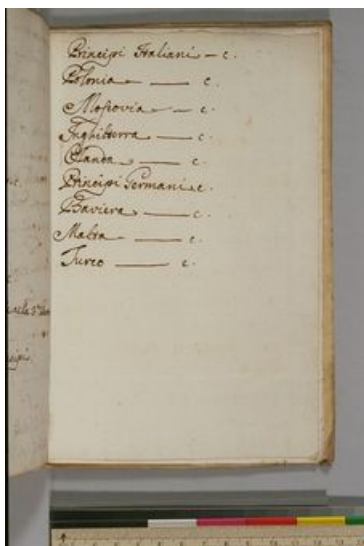 Principi Italiani — c.
Polonia — c.
Moscovia — c.
Inghilterra — c.
Olanda — c.
Principi Germani c.
Baviera — c.
Malta — c.
Turco — c.